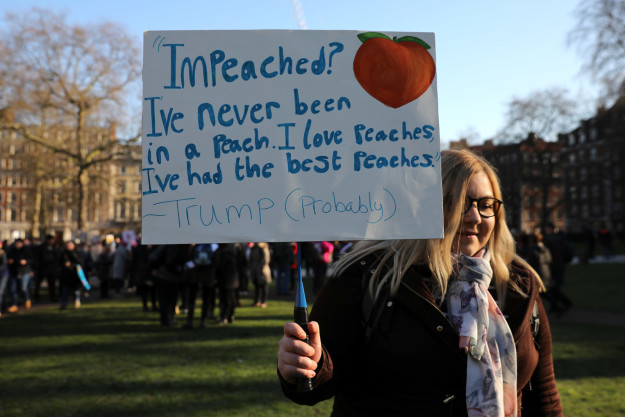 "Impeached?
I've never been
in a peach. I love peaches,
I've had the best peaches."
~Trump (probably)